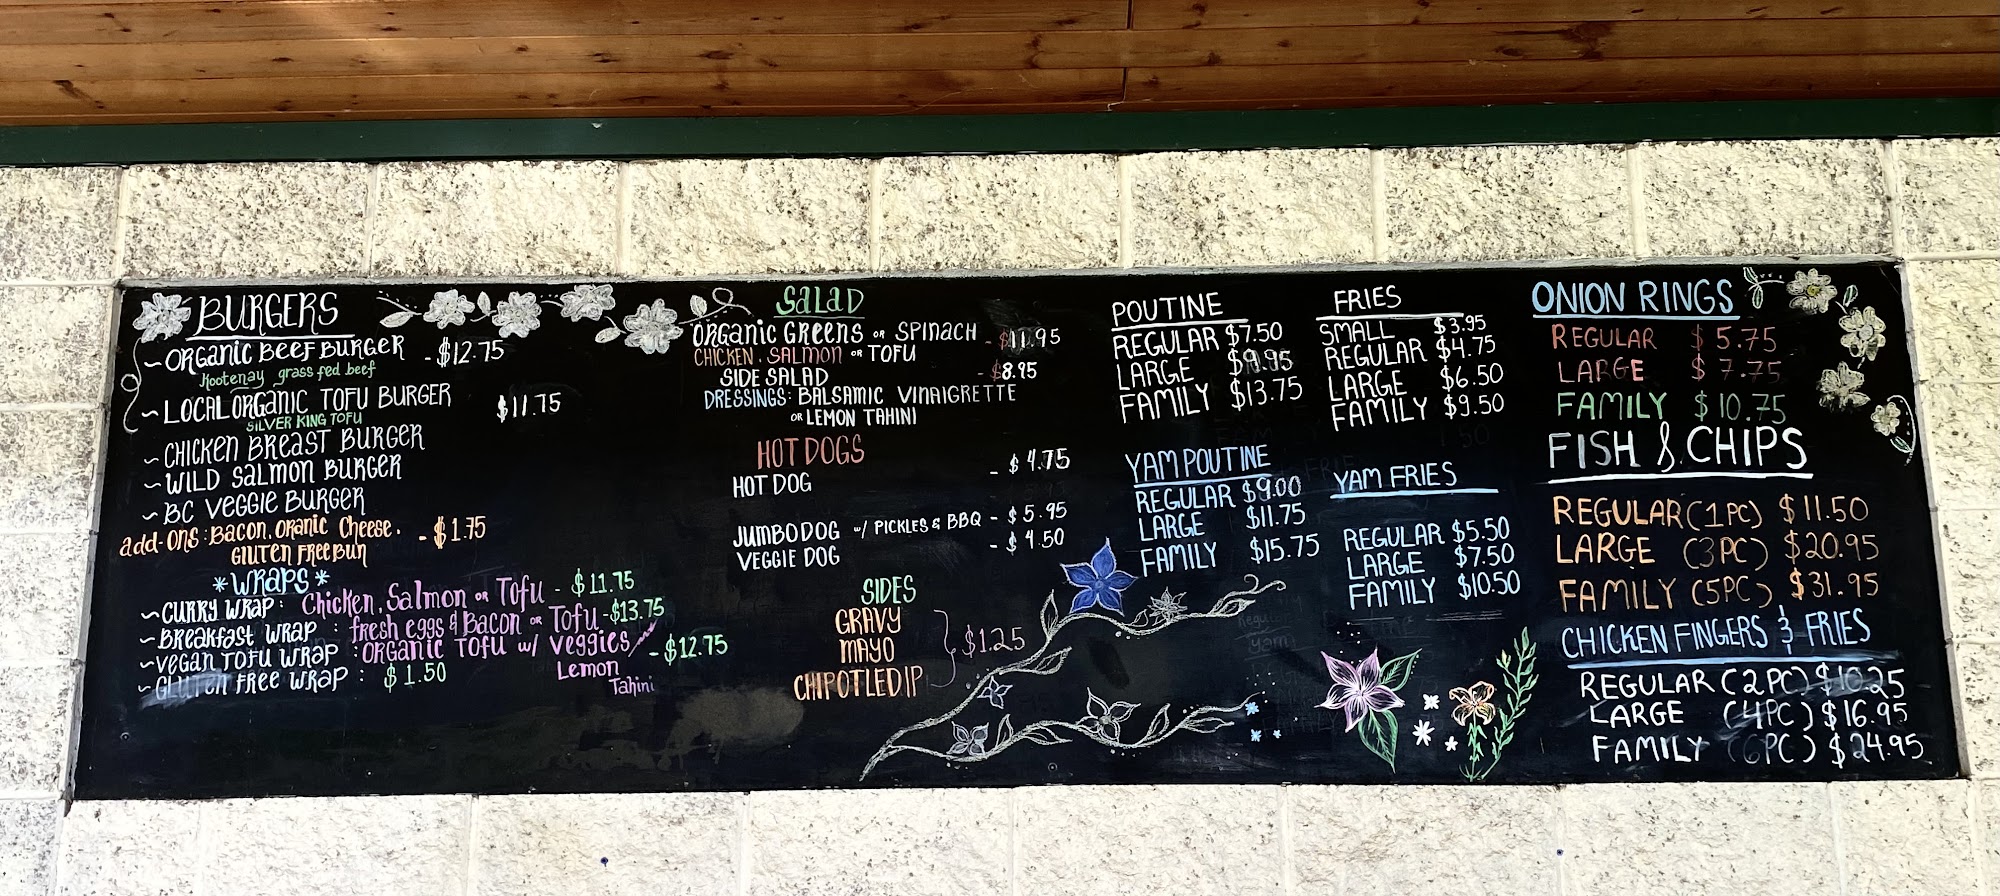 BURGERS
~ ORGANIC BEEF BURGER - $12.75
Kootenay grass fed beef
~ LOCAL ORGANIC TOFU BURGER $11.75
SILVER KING TOFU
~ CHICKEN BREAST BURGER
~ WILD SALMON BURGER
~ BC VEGGIE BURGER
add-ons: Bacon, oranic cheese, - $1.75
Gluten Free Bun
*WRAPS*
~ CURRY WRAP: Chicken, Salmon or Tofu - $11.75
~ BREAKFAST WRAP: fresh eggs & Bacon or Tofu - $13.75
~ VEGAN TOFU WRAP: ORGANIC TOFU w/ veggies - $12.75
Lemon
Tahini
~ GLUTEN FREE WRAP: $1.50
SALAD
ORGANIC GREENS OR SPINACH - $11.95
CHICKEN, SALMON OR TOFU
SIDE SALAD - $8.95
DRESSINGS: BALSAMIC VINAIGRETTE
OR LEMON TAHINI
HOT DOGS
HOT DOG - $4.75
JUMBO DOG w/ PICKLES & BBQ - $5.95
VEGGIE DOG - $4.50
SIDES
GRAVY
MAYO $1.25
CHIPOTLE DIP
POUTINE
REGULAR $7.50
LARGE
FAMILY $13.75
YAM POUTINE
REGULAR $9.00
LARGE $11.75
FAMILY $15.75
FRIES
SMALL $3.95
REGULAR $4.75
LARGE $6.50
FAMILY $9.50
YAM FRIES
REGULAR $5.50
LARGE $7.50
FAMILY $10.50
ONION RINGS
REGULAR $5.75
LARGE $7.75
FAMILY $10.75
FISH & CHIPS
REGULAR (1PC) $11.50
LARGE (3PC) $20.95
FAMILY (5PC) $31.95
CHICKEN FINGERS & FRIES
REGULAR (2PC) $10.25
LARGE (4PC) $16.95
FAMILY (6PC) $24.95